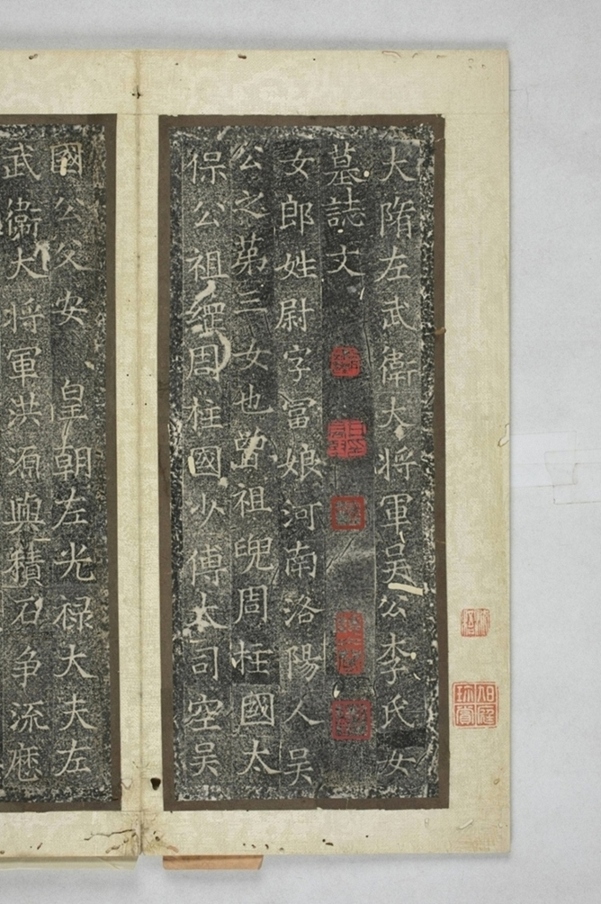 大隋左武衞大将軍吴公李氏女
墓誌文
女郎姓尉字富娘河南洛陽人吴
公之苐三女也曾祖兜周柱國太
保公祖綱周柱國少傅大司空吴
國公父安皇朝左光禄大夫左
武衞大将軍洪源與積石争流廐